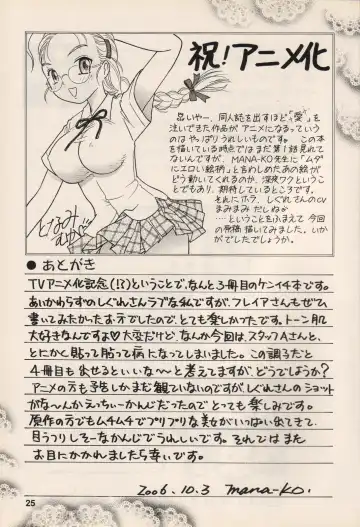 祝!アニメ化
思いやー、同人誌を出すほど「愛」を
注いできた作品が アニメになるっていう
のは やっぱりうれしいものです。 この本
を描いている時点では まだ第1話見れて
ないんですが、MANA-KO先生に「ムダ
にエロい絵柄」と言わしめたあの絵が
どう動いてくれるのか、深夜ワクということ
でもあり、期待しているところです。
それにホラ、しぐれさんのCV
まみまみ だしねか
……ということをふまえて 今回
の原稿 描いてみました。いか
がでしたでしょうか。
● あとがき
TVアニメ化記念(!?)ということで、なんと3冊目のケンイチ本です。
あいかわらずのしぐれさんラブな私ですが、フレイアさんもぜひ
書いてみたかったお方でしたので、とても楽しかったです。トーン肌
大好きなんですよ♡大変だけど、なんか今回は、スタッフAさんと、
とにかく貼って貼って病になってしまいました。この調子だと
4冊目も出せるといいな~と考えてますが、どうでしょうか?
アニメの方も予告しかまだ観ていないのですが、しぐれさんのショット
がな~んかえっちぃーかんじだったのでとっても楽しみです。
原作の方でもムチムチでプリプリな美女がいっぱい出てきて
目うつりしそーなかんじでうれしいです。それでは また
お目にかかれましたら幸いです。
2006.10.3 mana-ko.
25